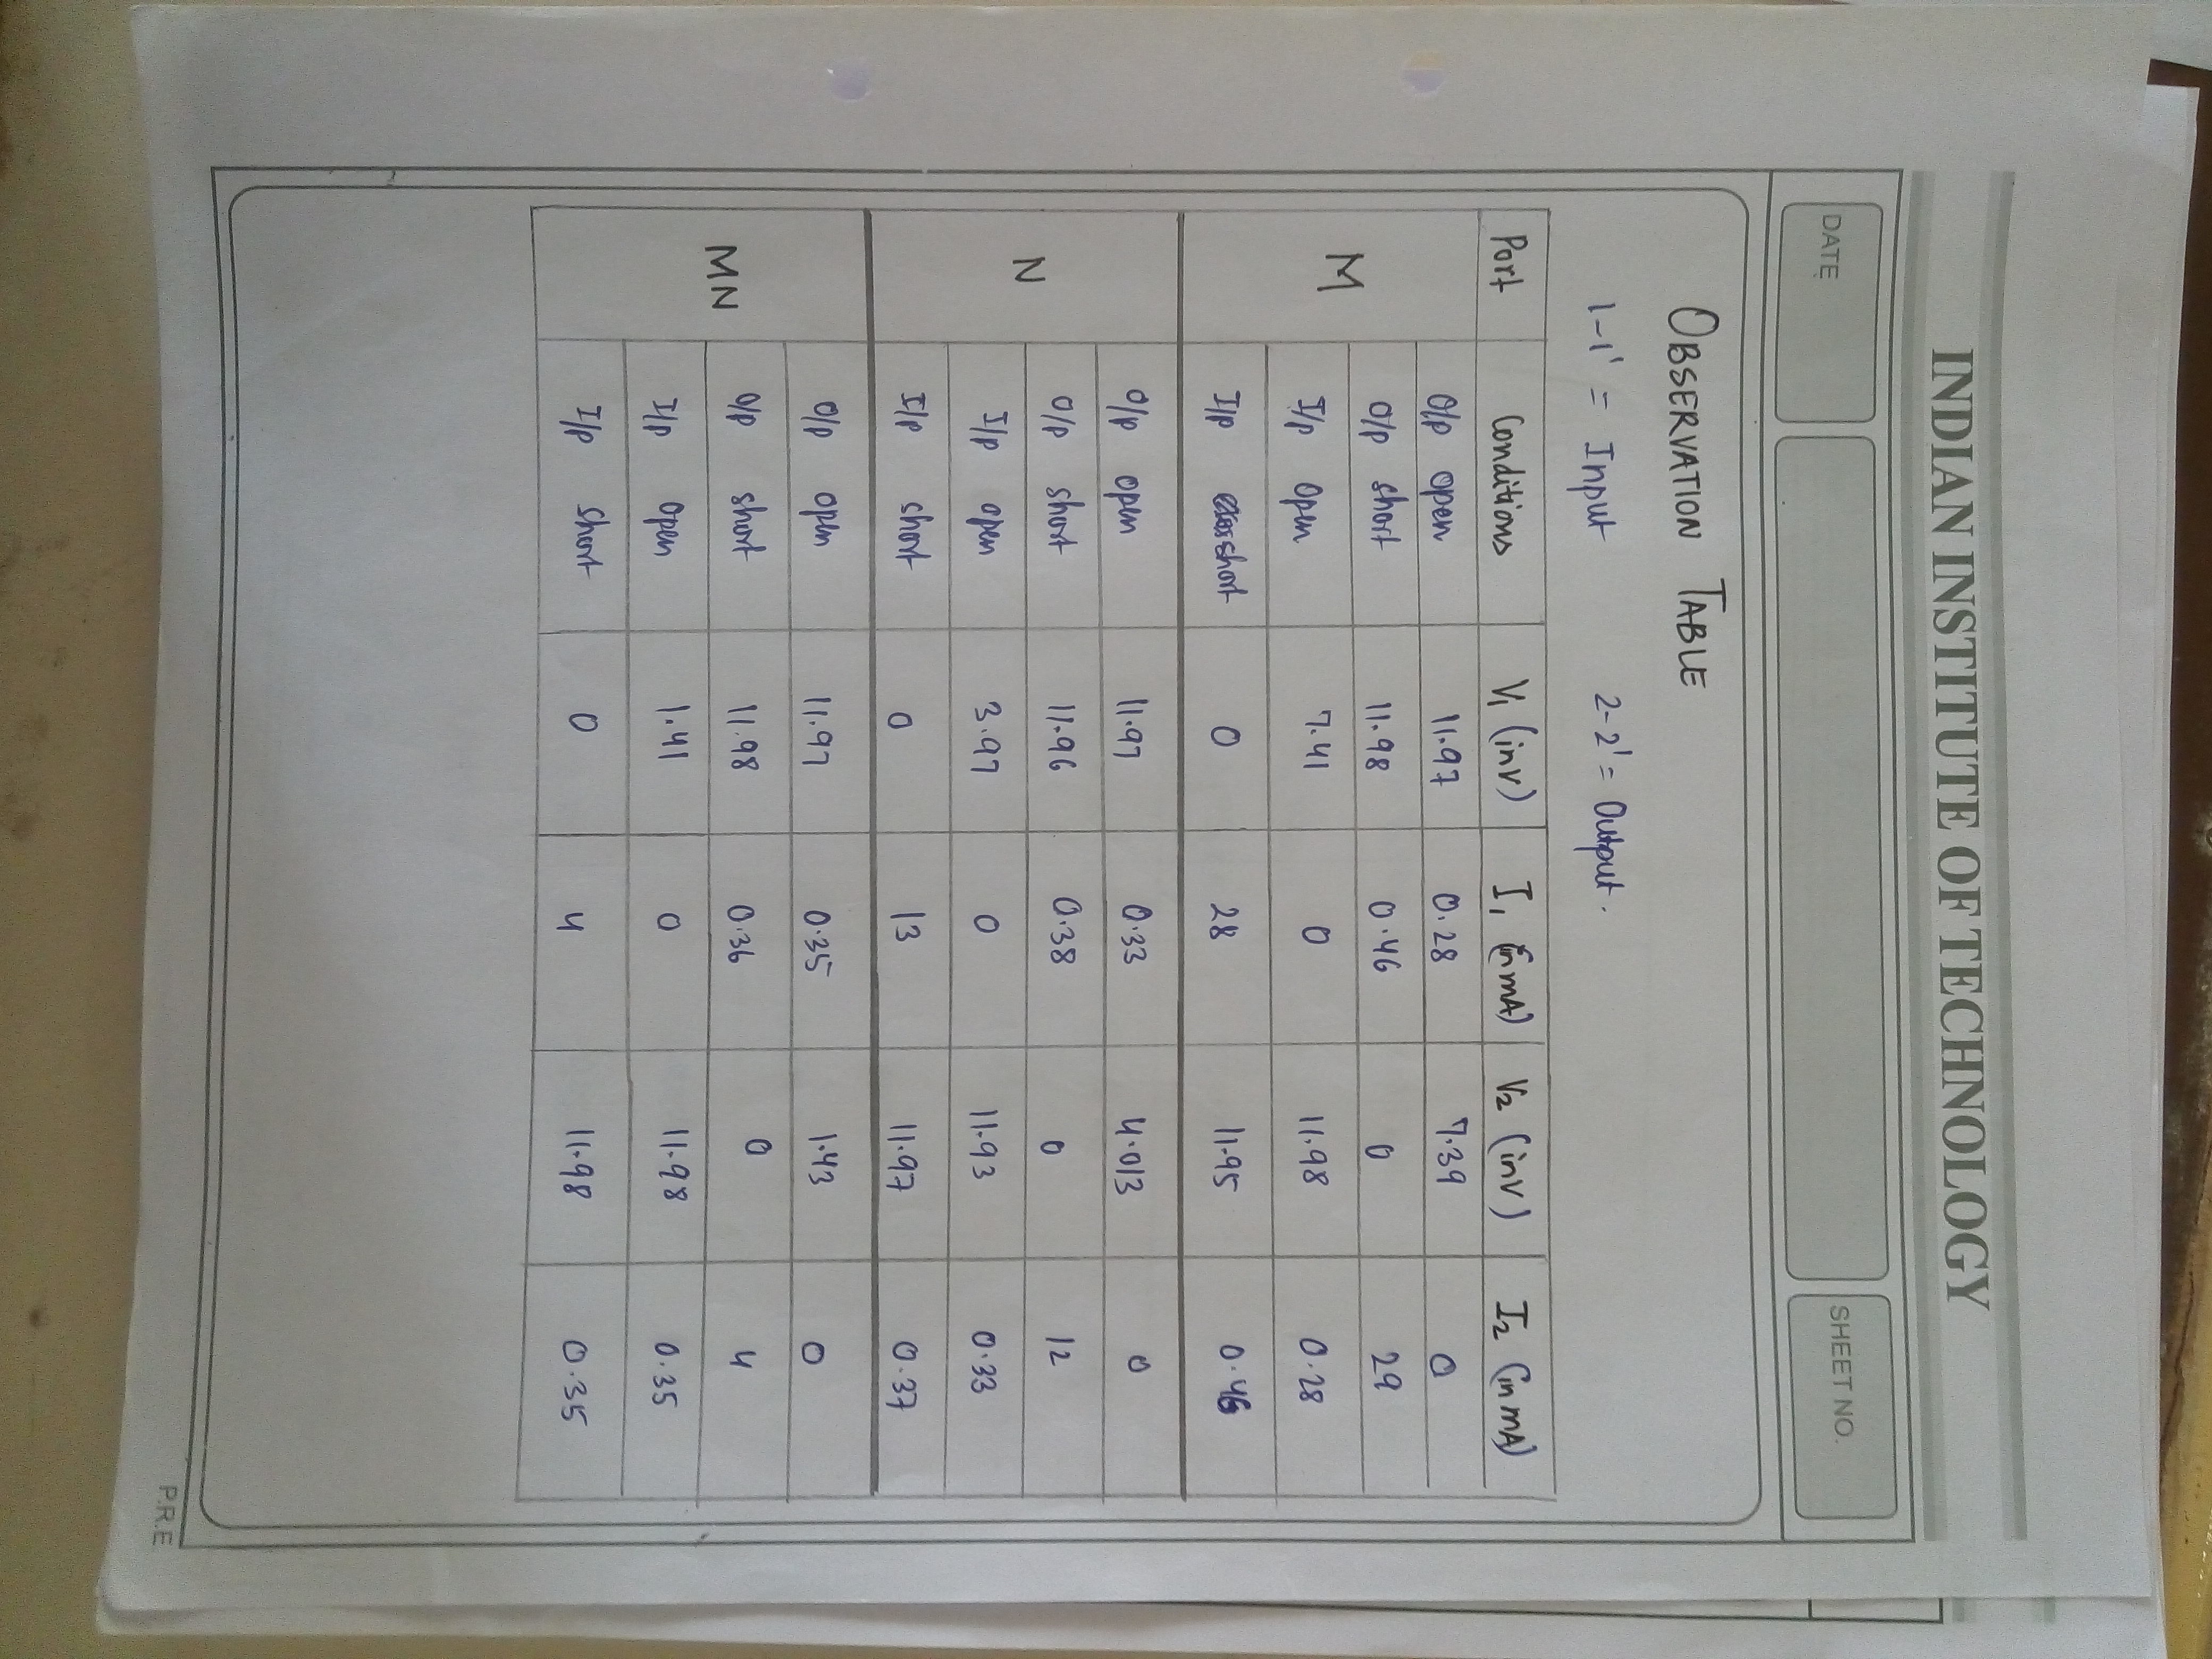 INDIAN INSTITUTE OF TECHNOLOGY
DATE
SHEET NO.
OBSERVATION TABLE
1-1' = Input 2-2' = Output.
Port Conditions V1 (in V) I1 (in mA) V2 (in V) I2 (in mA)
M
O/p open 11.97 0.28 7.39 0
O/p short 11.98 0.46 0 29
I/p open 7.41 0 11.98 0.28
I/p short 0 28 11.95 0.46
N
O/p open 11.97 0.33 4.013 0
O/p short 11.96 0.38 0 12
I/p open 3.97 0 11.93 0.33
I/p short 0 13 11.97 0.37
MN
O/p open 11.97 0.35 1.43 0
O/p short 11.98 0.36 0 4
I/p open 1.41 0 11.98 0.35
I/p short 0 4 11.98 0.35
P.R.E